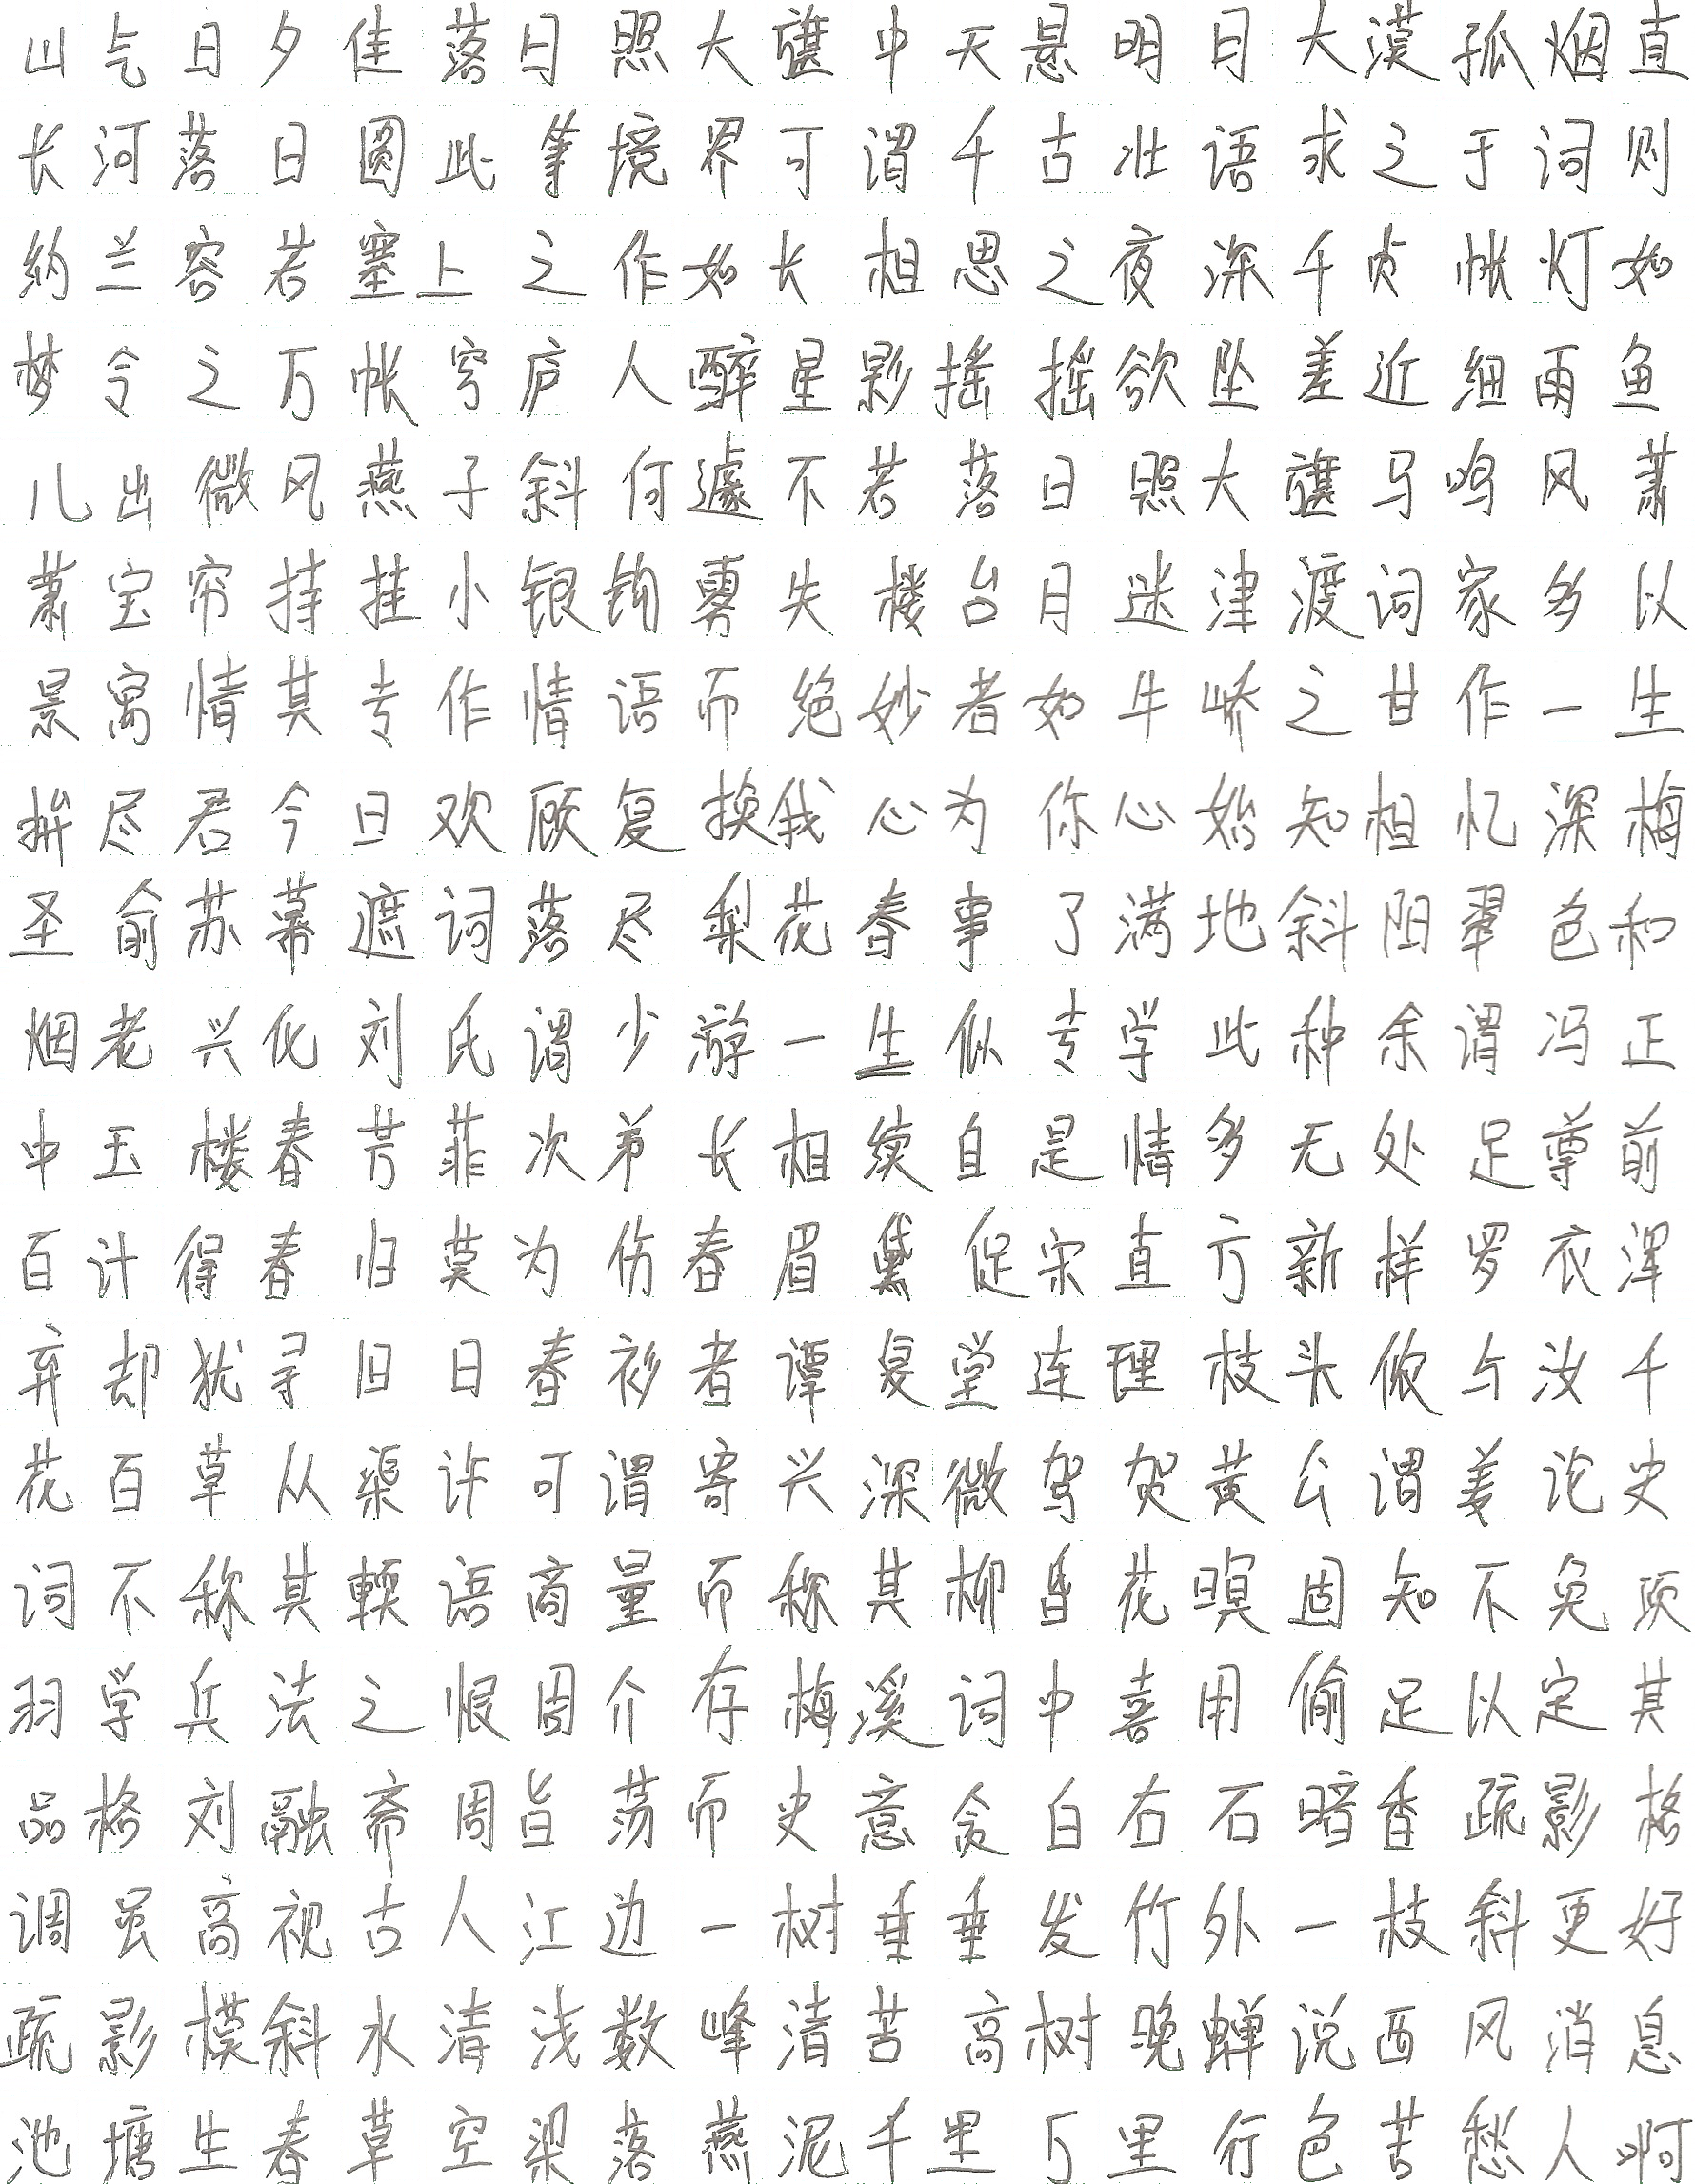 山气日夕佳落日照大旗中天悬明月大漠孤烟直
长河落日圆此等境界可谓千古壮语求之于词则
纳兰容若塞上之作如长相思之夜深千帐灯如
梦令之万帐穹庐人醉星影摇摇欲坠差近细雨鱼
儿出微风燕子斜何遽不若落日照大旗马鸣风萧
萧宝帘挂小银钩雾失楼台月迷津渡词家多以
景寓情其专作情语而绝妙者如牛峤之甘作一生
拚尽君今日欢顾复换我心为你心始知相忆深梅
圣俞苏幕遮词落尽梨花春事了满地斜阳翠色和
烟老兴化刘氏谓少游一生似专学此种余谓冯正
中玉楼春芳菲次第长相续自是情多无处足尊前
百计得春归莫为伤春眉黛促宋直方新样罗衣浑
弃却犹寻旧日春衫者谭复堂连理枝头侬与汝千
花百草从渠许可谓寄兴深微贺黄公谓姜论史
词不称其軟语商量而称其柳昏花暝固知不免项
羽学兵法之恨周介存梅溪词中喜用偷足以定其
品格刘融斋周旨荡而史意贪白石暗香疏影格
调虽高视古人江边一树垂垂发竹外一枝斜更好
疏影横斜水清浅数峰清苦高树晚蝉说西风消息
池塘生春草空梁落燕泥千里万里行色苦愁人啊